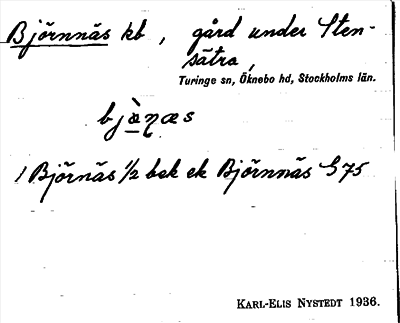 Björnnäs kb, gård under Sten-
sätra,
Turinge sn, Öknebo hd, Stockholms län.
bjὰɳæs
1 Björnäs 1/2 bsk ek Björnnäs G 75
KARL-ELIS NYSTEDT 1936.